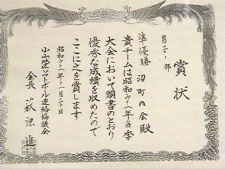 賞状
男子一部
準優勝 沼町内会殿
貴チームは昭和六一年冬季
大会において頭書のとおり
優秀な成績を収めたので
ここに之を賞します
昭和六一年一一月三十日
小山地区ソフトボール連絡協議会
会長